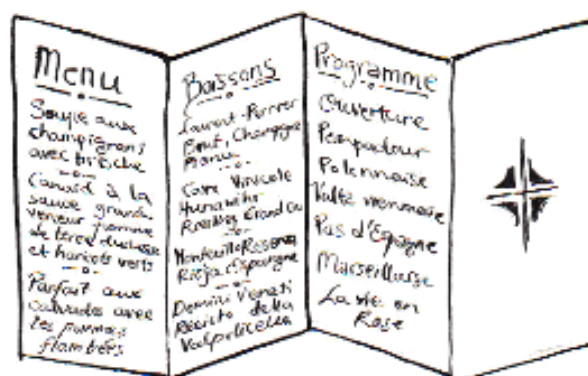 Menu
Soupe aux
champignons
avec brioche
Canard à la
sauce grand
veneur pomme
de terre duchesse
et haricots verts
Parfait aux
calvados avec
les pommes
flambées
Boissons
Laurent-Perrier
Brut, Champagne
Cave Vinicole
Hunawihr
Grand Cru
Reserva
Rioja, Espagne
Domini Veneti
Recioto della
Valpolicella
Programme
Ouverture
Pompadour
Polonnaise
Valse viennoise
Pas d'Espagne
Marseillaise
La vie en
Rose